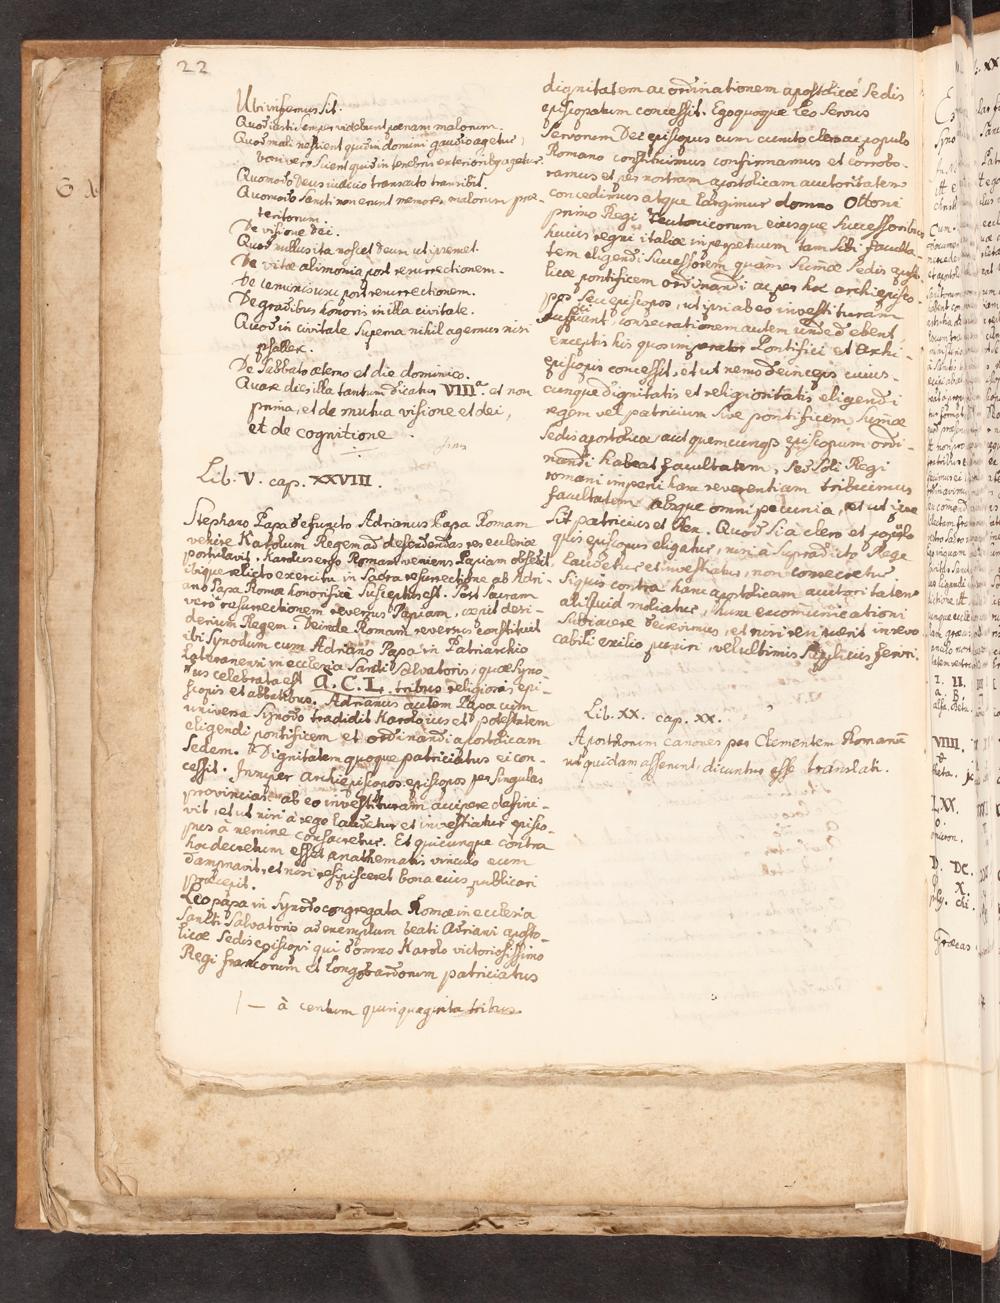 22
Ubi infernus sit.
Quod iusti semper videbunt pœnam malorum.
Quod mali nescient quid in domini gaudio agetur,
boni vero scient quid in tenebris exterioribus agetur.
Quomodo Deus iudicio transacto transibit.
Quomodo sancti non erunt memores malorum præ-
teritorum.
De visione dei.
Quod nullus ita noscet deum, ut ipsemet.
De vitæ alimonia post resurrectionem.
De luminis usu post resurrectionem.
De gradibus honoris in illa civitate.
Quod in civitate superna nihil agemus nisi
psallere.
De Sabbato æterno et die dominico.
Quare dies illa tantum dicatur VIIIª. et non
prima, et de mutua visione et dei,
et de cognitione.
finis
Lib. V. cap. XXVIII.
Stephano Papa defuncto Adrianus Papa Romam
venire Karolum Regem ad defendendas res ecclesiæ
postulavit. Karolus ergo Romam veniens Papiam obsedit
ibique relicto exercitu in sacra resurrectione ab Adri-
ano Papa Romæ honorifice susceptus est. Post sacram
vero resurrectionem reversus Papiam, cœpit desi-
derium Regem. Deinde Romam reversus constituit
ibi Synodum cum Adriano Papa in Patriarchio
Lateranensi in ecclesia Sancti Salvatoris, quæ syno-
dus celebrata est a. C. L. tribus religiosis epi-
scopis et abbatibus. Adrianus autem Papa cum
universa Synodo tradidit Karolo ius et potestatem
eligendi pontificem et ordinandi apostolicam
Sedem. Dignitatem quoque patriciatus ei con-
cessit. Insuper archiepiscopos episcopos per singulas
provincias ab eo investituram accipere diffini-
vit, et ut nisi à rege laudetur et investiatur episco-
pus à nemine consacretur. Et quicunque contra
hoc decretum esset anathematis vinculo eum
damnavit, et nisi resipisceret bona eius publicari
præcepit.
Leo papa in Synodo congregata Romæ in ecclesia
Sancti Salvatoris ad exemplum beati Adriani aposto-
licæ Sedis episcopi qui domno Karolo victoriosissimo
Regi francorum et Longobardorum patriciatus
|— à centum quinquaginta tribus
dignitatem ac ordinationem apostolicæ Sedis
episcopatum concessit. Ego quoque Leo Servus
Servorum Dei episcopus cum cuncto clero ac populo
Romano constituimus confirmamus et corrobo-
ramus et per nostram apostolicam auctoritatem
concedimus atque largimur domno Ottoni
primo Regi Teutonicorum eiusque Successoribus
huius regni italiæ in perpetuum tam sibi faculta-
tem eligendi successorem quam summæ Sedis aposto-
licæ pontificem ordinandi ac per hoc archiepisco-
pos seu episcopos, ut ipsi ab eo investituram
accipiant, consecrationem autem unde debent,
exceptis his quos imperator Pontifici et Archi-
episcopis concessit, et ut nemo deinceps cuius-
cunque dignitatis et religiositatis eligendi
regem vel patricium sive pontificem summæ
Sedis apostolicæ aut quemcunque episcopum ordi-
nandi habeat facultatem, sed soli Regi
romani imperii hanc reverentiam tribuimus
facultatem absque omni pecunia, et ut ipse
sit patricius et Rex. Quod si a clero et populo
quis episcopus eligatur, nisi a supradicto Rege
laudetur et investiatur, non consecretur.
Siquis contra hanc apostolicam auctoritatem
aliquid moliatur, hunc excommunicationi
subiacere decrevimus, et nisi resipuerit inrevo-
cabili exilio puniri, vel ultimis suppliciis feriri.
Lib. XX. cap. XX.
Apostolorum canones per Clementem Romanum
ut quidam asserunt, dicuntur esse translati.